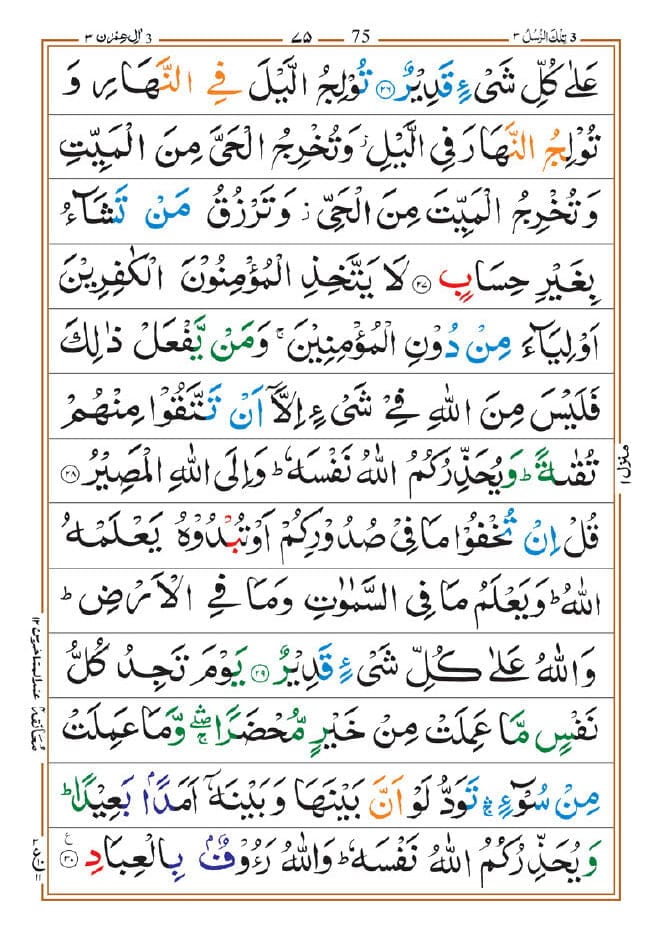 تِلْكَ الرُّسُلُ ٣ 3 75 ٧٥ اٰلِ عِمْرٰن ٣ 3
عَلٰى كُلِّ شَىْءٍ قَدِيْرٌ ۝٢٦ تُوْلِجُ الَّيْلَ فِى النَّهَارِ وَ
تُوْلِجُ النَّهَارَ فِى الَّيْلِ ز وَتُخْرِجُ الْحَىَّ مِنَ الْمَيِّتِ
وَتُخْرِجُ الْمَيِّتَ مِنَ الْحَىِّ ز وَتَرْزُقُ مَنْ تَشَآءُ
بِغَيْرِ حِسَابٍ ۝٢٧ لَا يَتَّخِذِ الْمُؤْمِنُوْنَ الْكٰفِرِيْنَ
اَوْلِيَآءَ مِنْ دُوْنِ الْمُؤْمِنِيْنَ ۚ وَمَنْ يَّفْعَلْ ذٰلِكَ
فَلَيْسَ مِنَ اللّٰهِ فِىْ شَىْءٍ اِلَّاۤ اَنْ تَتَّقُوْا مِنْهُمْ
تُقٰىةً ؕ وَيُحَذِّرُكُمُ اللّٰهُ نَفْسَهٗ ؕ وَاِلَى اللّٰهِ الْمَصِيْرُ ۝٢٨
قُلْ اِنْ تُخْفُوْا مَا فِىْ صُدُوْرِكُمْ اَوْ تُبْدُوْهُ يَعْلَمْهُ
اللّٰهُ ؕ وَيَعْلَمُ مَا فِى السَّمٰوٰتِ وَمَا فِى الْاَرْضِ ؕ
وَاللّٰهُ عَلٰى كُلِّ شَىْءٍ قَدِيْرٌ ۝٢٩ يَوْمَ تَجِدُ كُلُّ
نَفْسٍ مَّا عَمِلَتْ مِنْ خَيْرٍ مُّحْضَرًا ۛۖۚ وَّمَا عَمِلَتْ
مِنْ سُوْٓءٍ ۛۚ تَوَدُّ لَوْ اَنَّ بَيْنَهَا وَبَيْنَهٗۤ اَمَدًاۢ بَعِيْدًا ؕ
وَيُحَذِّرُكُمُ اللّٰهُ نَفْسَهٗ ؕ وَاللّٰهُ رَءُوْفٌۢ بِالْعِبَادِ ۝٣٠ ع
منزل ١
معانقة ٢ عند المتاخرين ١٢